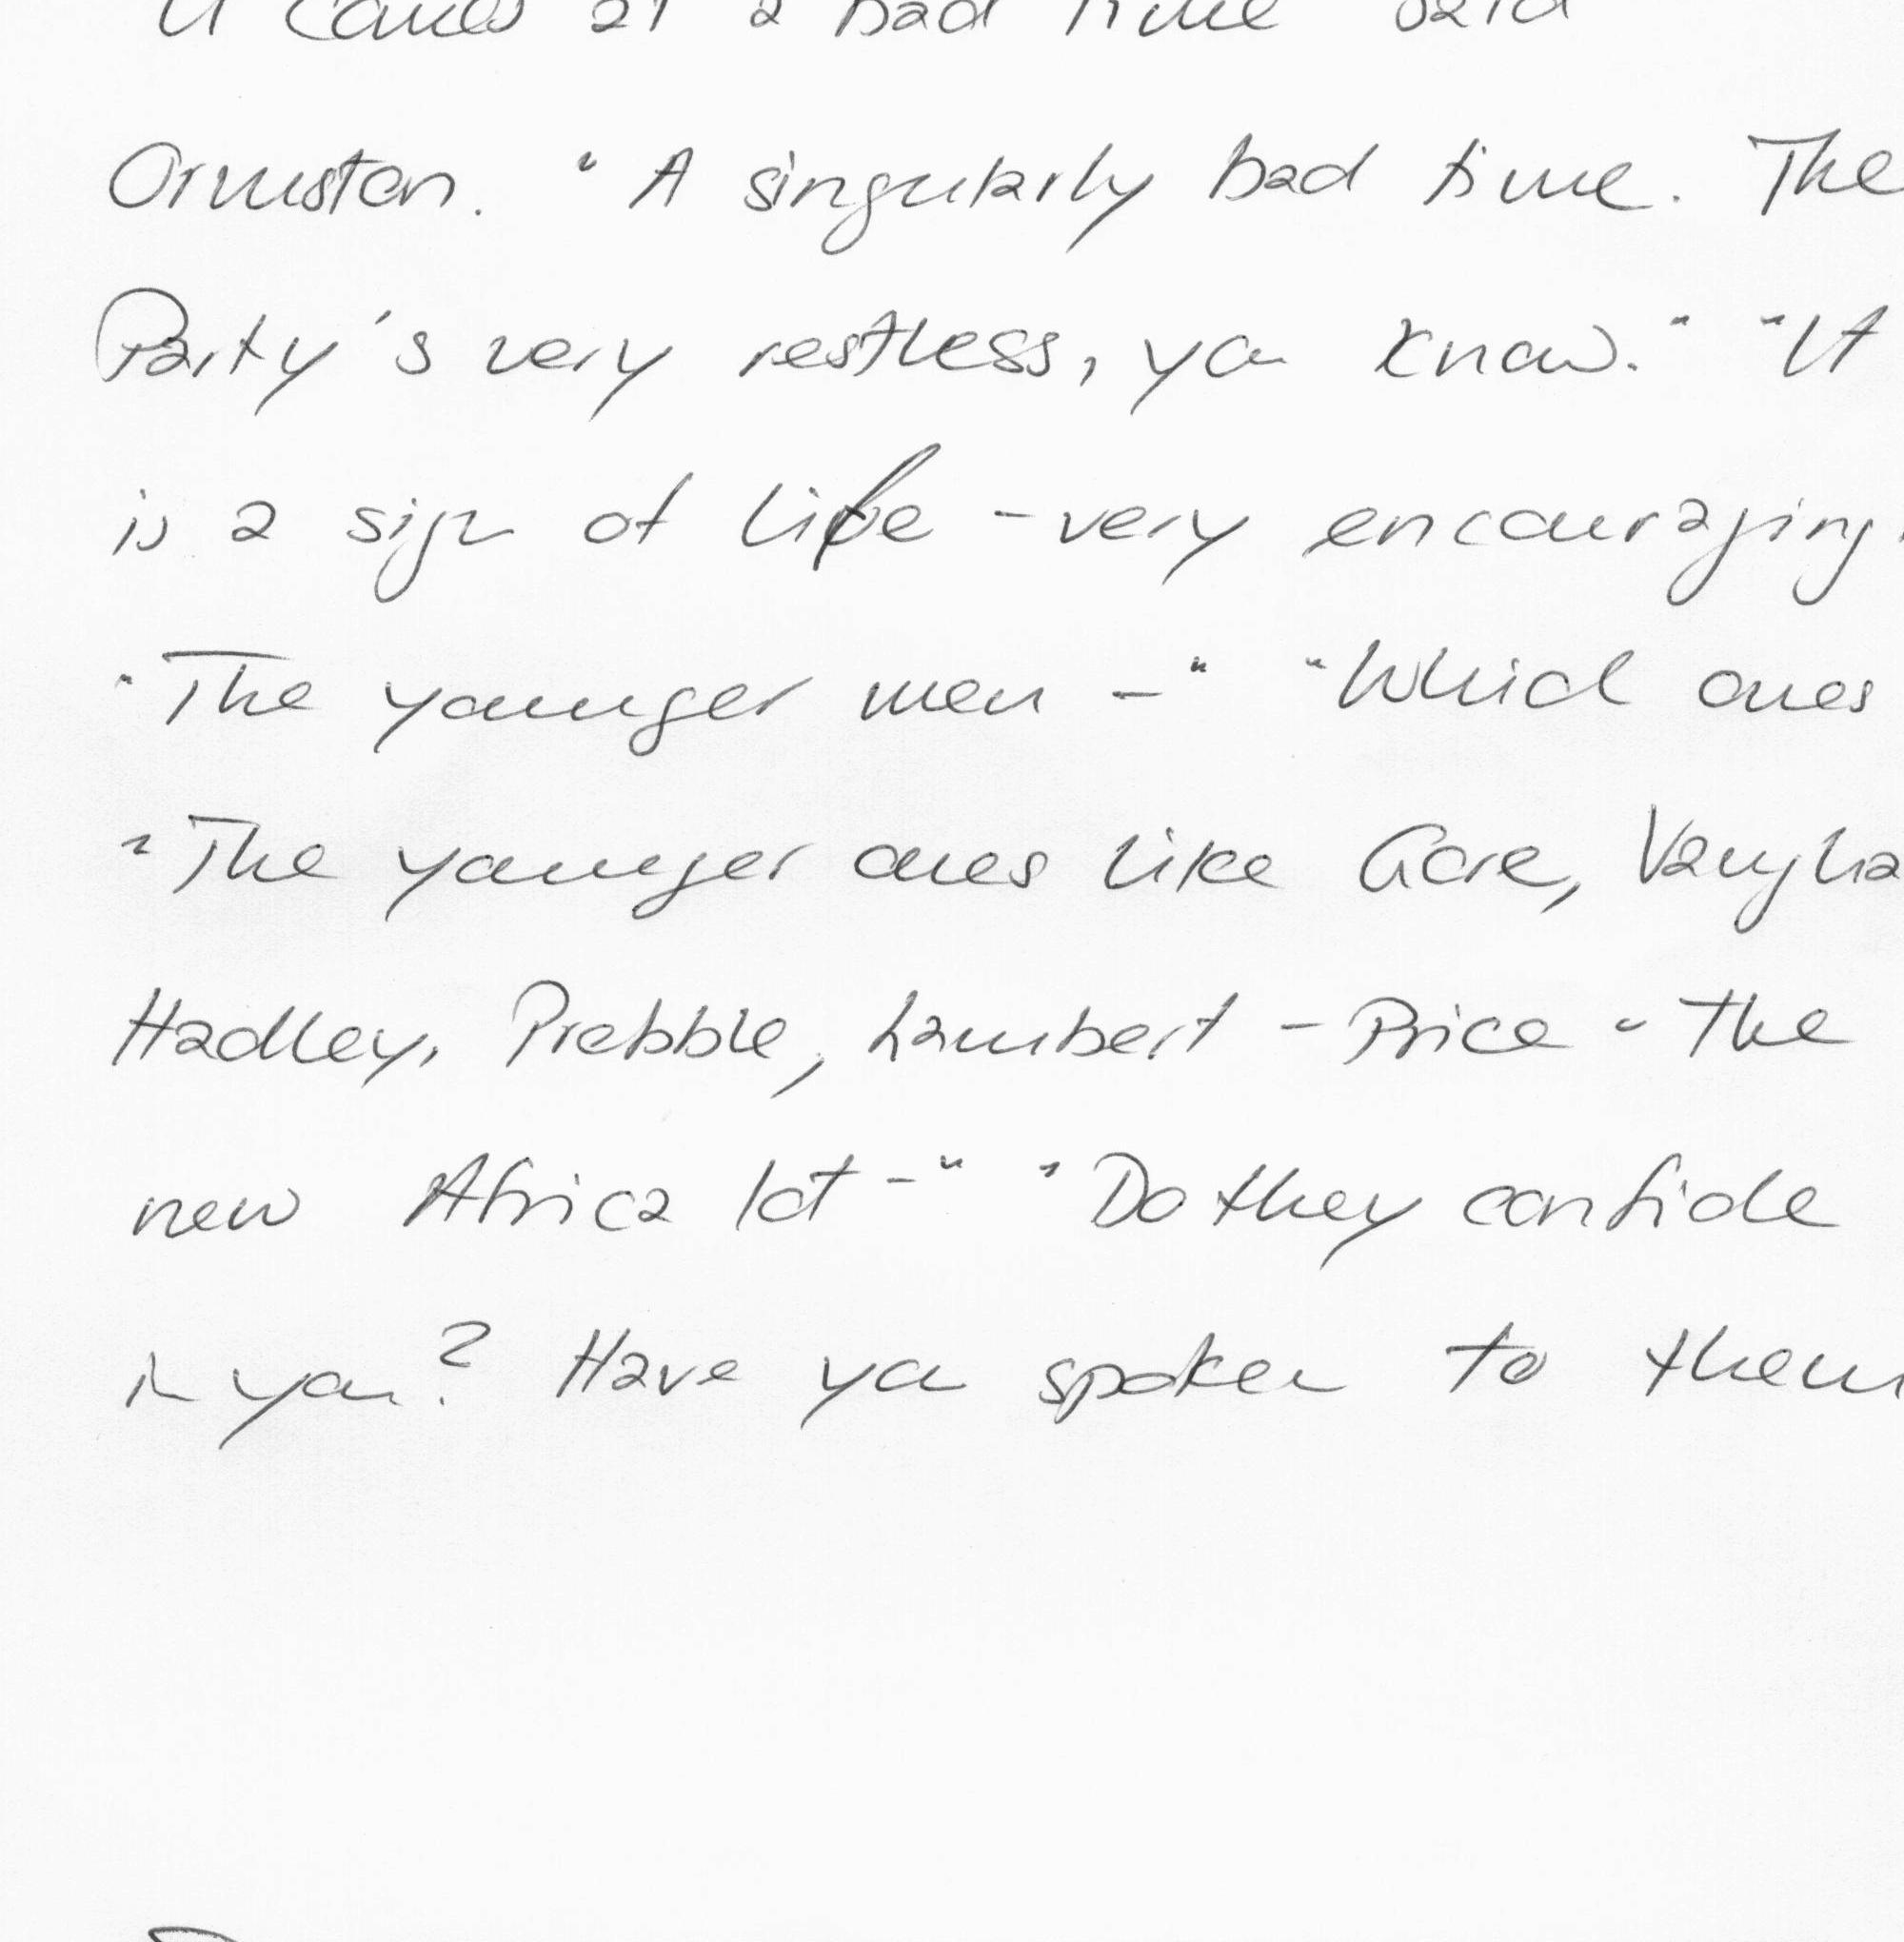 It comes at a bad time said
Ormston. "A singularly bad time. The
Party's very restless, you know." "It
is a sign of life - very encouraging.
"The younger men -" "Which ones
"The younger ones like Gore, Vaugha
Hadley, Prebble, Lambert - Price - The
new Africa lot -" "Do they confide
in you? Have you spoken to them